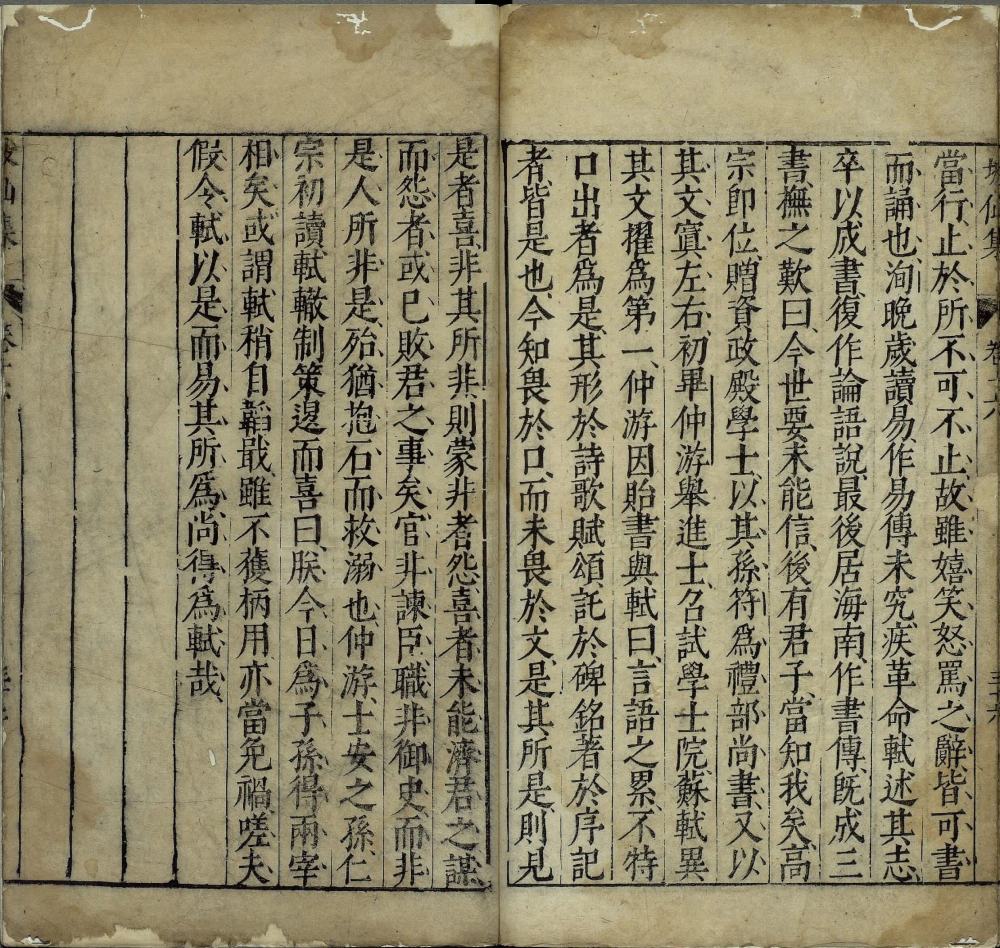 坡仙集 卷十六 三十六
當行止於所不可不止、故雖嬉笑怒罵之辭、皆可書
而誦也、洵晚歲讀易、作易傳未究、疾革、命軾述其志、
卒以成書、復作論語說、最後居海南、作書傳、既成三
書、撫之歎曰、今世要未能信、後有君子、當知我矣、高
宗即位、贈資政殿學士、以其孫符爲禮部尚書、又以
其文寘左右、初畢仲游舉進士、召試學士院、蘇軾異
其文、擢爲第一、仲游因貽書與軾曰、言語之累、不特
口出者爲是、其形於詩歌賦頌、託於碑銘、著於序記
者、皆是也、今知畏於口、而未畏於文、是其所是、則見
是者喜、非其所非、則蒙非者怨、喜者未能濟君之謀、
而怨者或已敗君之事矣、官非諫臣、職非御史、而非
是人所非是、殆猶抱石而救溺也、仲游、士安之孫、仁
宗初讀軾轍制策、退而喜曰、朕今日爲子孫得兩宰
相矣、或謂軾稍自韜戢、雖不獲柄用、亦當免禍、嗟夫、
假令軾以是而易其所爲、尚得爲軾哉、
坡仙集